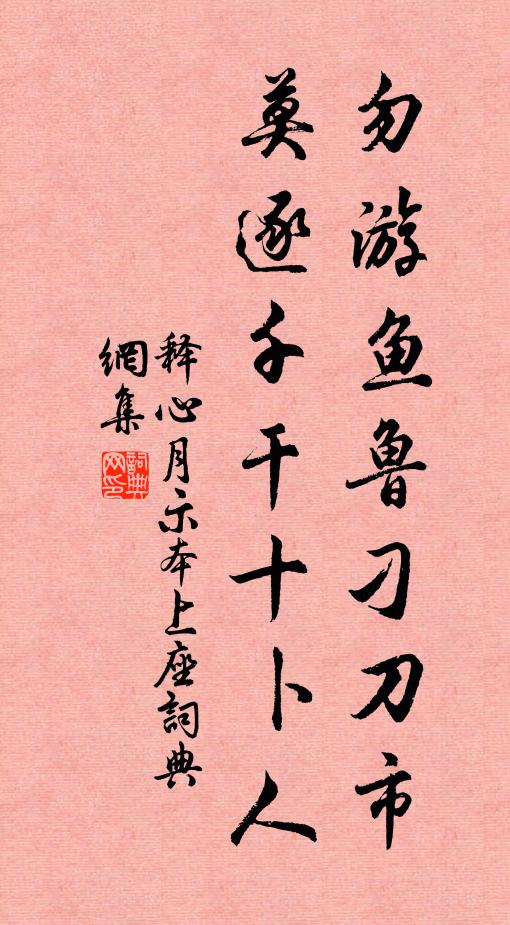 勿游鱼鲁刁刀市
莫逐千干十卜人
释心月示本上座詞典
網集
詞典
网印